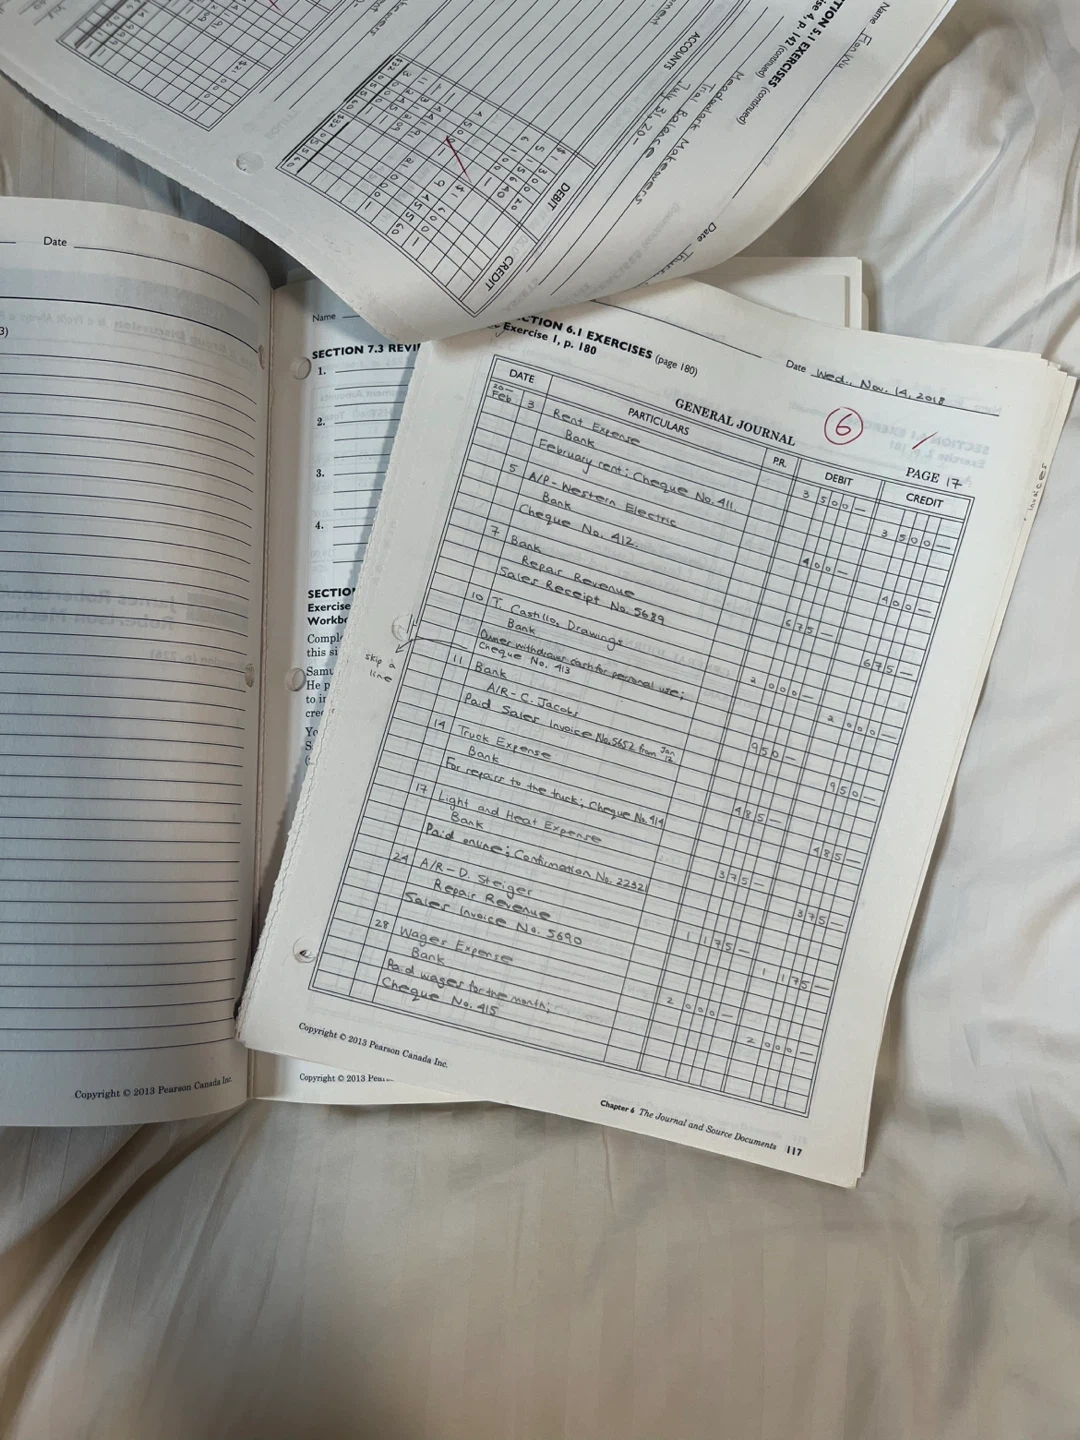 Name
SECTION 5.1 EXERCISES (continued)
p. 142 (continued)
Meadowlark Makeovers
Trial Balance
July 31, 20-
ACCOUNTS
DEBIT
CREDIT
Date
Date
3)
Copyright © 2013 Pearson Canada Inc.
Name
SECTION 7.3 REVI
1.
2.
3.
4.
SECTIO
Exercise
Workbo
Compl
this si
Samu
He p
to in
cre
Yo
S
Copyright © 2013 Pear
CTION 6.1 EXERCISES (page 180)
Exercise 1, p. 180
Date Wed., Nov. 14, 2018
6
GENERAL JOURNAL
PAGE 17
DATE PARTICULARS P.R. DEBIT CREDIT
20—
Feb. 3 Rent Expense 3 500 —
Bank 3 500 —
February rent; Cheque No. 411
5 A/P - Western Electric 400 —
Bank 400 —
Cheque No. 412
7 Bank 675 —
Repair Revenue 675 —
Sales Receipt No. 5689
10 T. Castillo, Drawings 2 000 —
Bank 2 000 —
Owner withdraws cash for personal use;
Cheque No. 413
skip a
line
11 Bank 950 —
A/R - C. Jacobs 950 —
Paid Sales Invoice No. 5652 from Jan 12
14 Truck Expense 485 —
Bank 485 —
For repairs to the truck; Cheque No. 414
17 Light and Heat Expense 375 —
Bank 375 —
Paid online; Confirmation No. 22321
24 A/R - D. Steiger 1 175 —
Repair Revenue 1 175 —
Sales Invoice No. 5690
28 Wages Expense 2 000 —
Bank 2 000 —
Paid wages for the month;
Cheque No. 415
Copyright © 2013 Pearson Canada Inc.
Chapter 6 The Journal and Source Documents 117